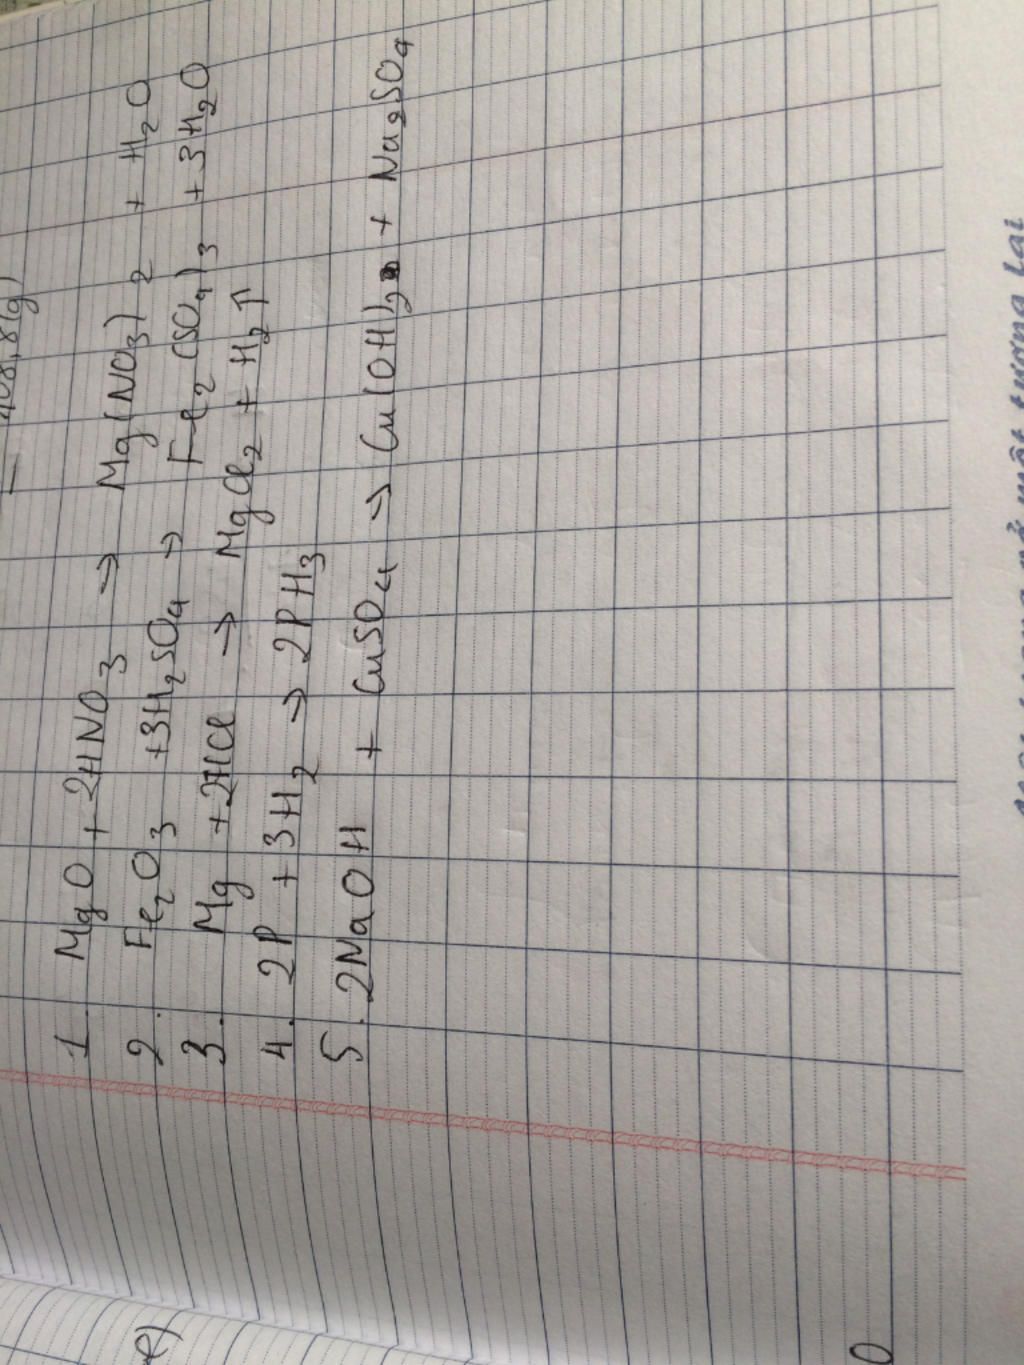 408,8(g)
1. MgO + 2HNO3 → Mg(NO3)2 + H2O
2. Fe2O3 + 3H2SO4 → Fe2(SO4)3 + 3H2O
3. Mg + 2HCl → MgCl2 + H2↑
4. 2P + 3H2 → 2PH3
5. 2NaOH + CuSO4 → Cu(OH)2 + Na2SO4
mở một tương lai